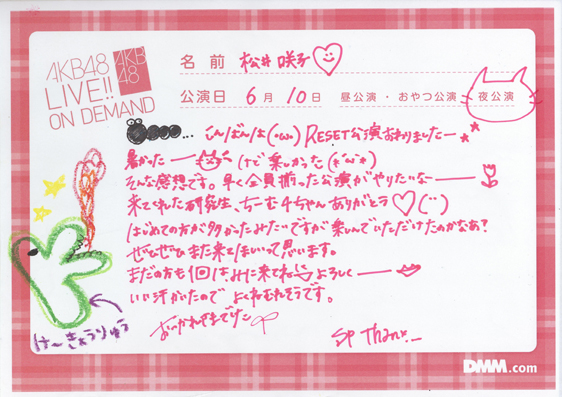 AKB48
LIVE!!
ON DEMAND
AKB
48
名前 松井咲子♡
公演日 6月10日 昼公演・おやつ公演・夜公演
こんばんは(・ω・) RESET公演おわりましたー
暑かったー けど楽しかった(*´ω`*)
そんな感想です。早く全員揃った公演がやりたいなー
来てくれた研究生、ちーむ4ちゃんありがとう♡(¨)
はじめての方が多かったみたいですが楽しんでいただけたのかなあ?
ぜひぜひまた来てほしいって思います。
まだの方も1回はみに来てね よろしくー
いい汗かいたので よくねむれそうです。
おつかれさまでした
SP Thanx
けーきょうりゅう
DMM.com